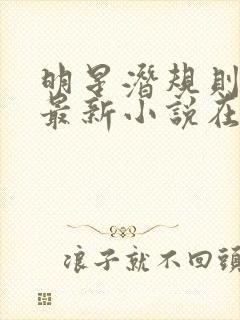 明星潛規則
最新小說在
浪子就不回頭